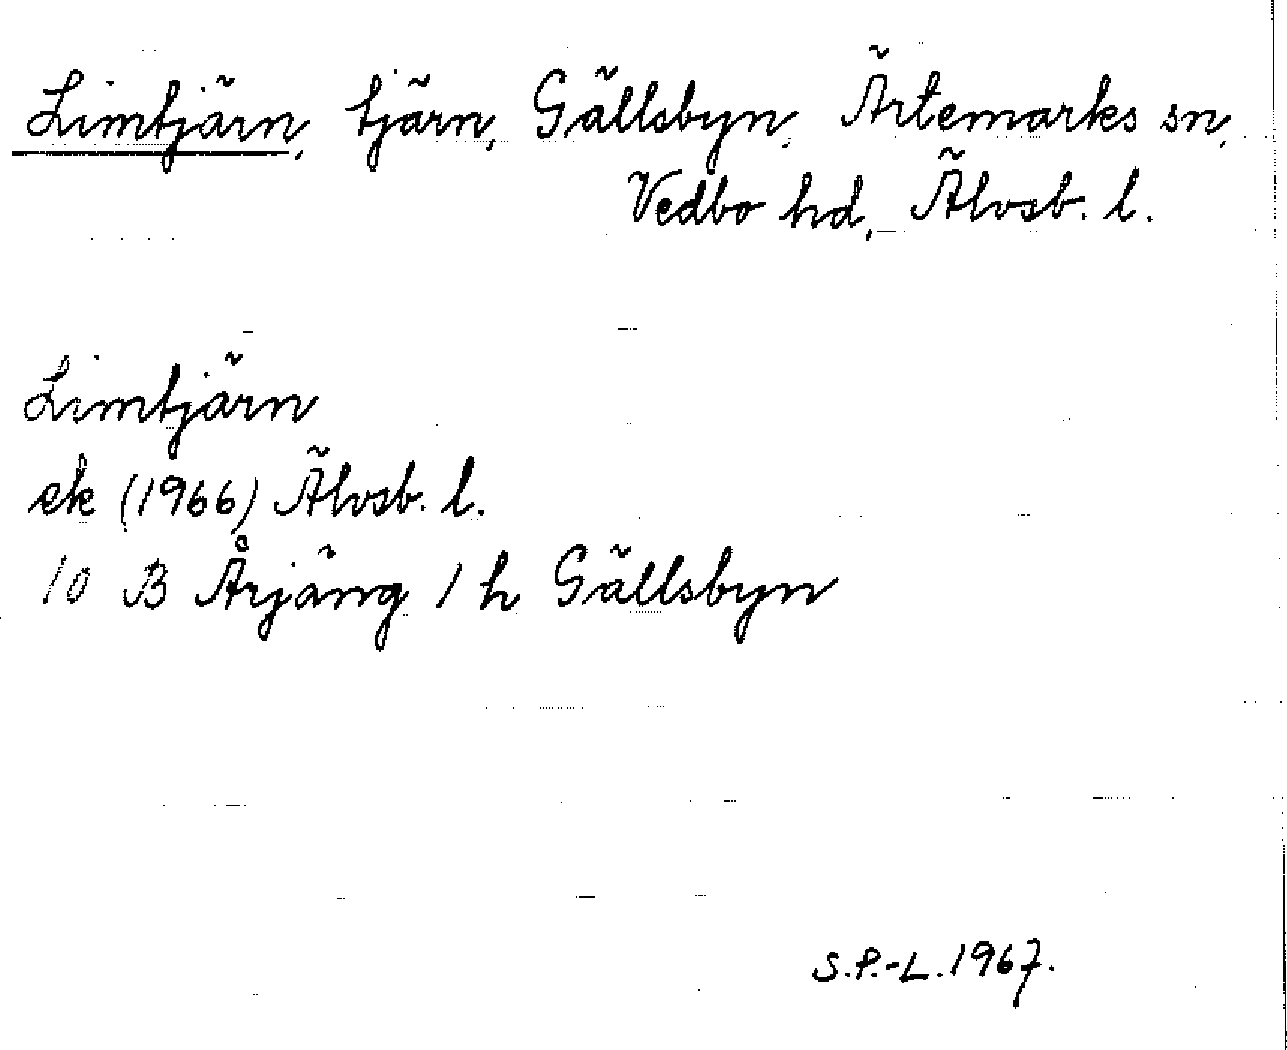 Limtjärn, tjärn, Gällsbyn, Ärtemarks sn,
Vedbo hd, Älvsb. l.
Limtjärn
ek (1966) Älvsb. l.
10 B Årjäng 1 h Gällsbyn
S.P.-L. 1967.